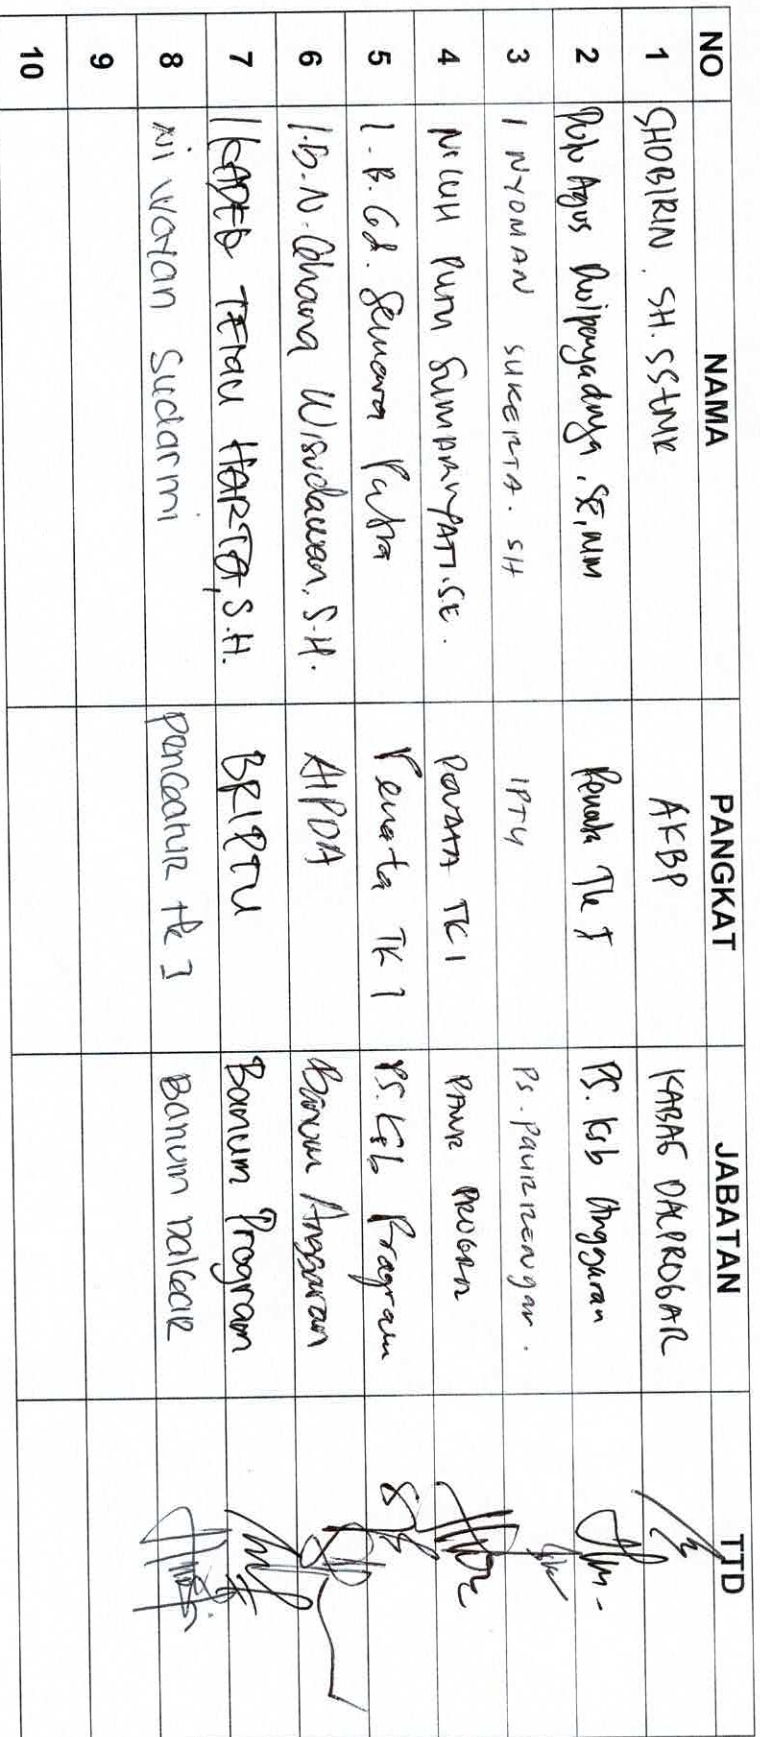 NO NAMA PANGKAT JABATAN TTD
1 SHOBIRIN. SH. SSTMK AKBP KABAG DALPROGAR
2 Putu Agus Dwipayadnya, SE, MM Penata Tk I PS. Ksb Anggaran
3 I NYOMAN SUKERTA. SH IPTU PS. PAURRENGAR.
4 NI LUH PUTU SUMARNYATI. SE. PENATA TK I PAUR PROGAR
5 I. B. Gd. Semara Putra Penata TK I PS. Ksb Program
6 I.B.N. Adnana Wisudawan, S.H. AIPDA Banum Anggaran
7 I KADEK TEJAU HARTA, S.H. BRIPTU Banum Program
8 Ni Wayan Sudarmi Pengatur tk I Banum Dalgar
9
10